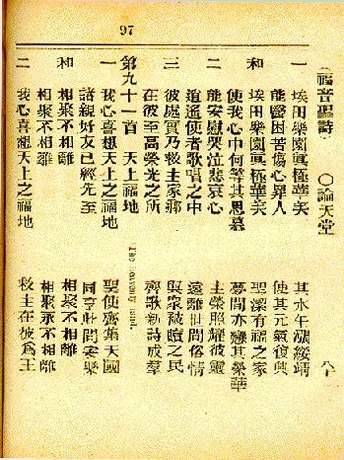 97
福音聖詩 ○論天堂 八十
一 埃田樂園眞極華美 其水午漲綏靖
能醫困苦傷心界人 使其元氣復興
和 埃田樂園眞極華美 聖潔有福之家
使我心中何等其思慕 夢間亦戀其榮華
二 能安慰哭泣悲哀心 主榮照耀彼靈
逍遙使者歌唱之中 遠離世間俗情
三 彼處實乃救主家鄉 與眾被贖之民
在彼至高榮光之所 齊歌新詩成羣
第九十一首 天上福地 The heavenly land.
一 我心喜想天上之福地 聖使齊集天國
諸親好友已經先至 同享此間安樂
和 相聚不相離 相聚不相離
相聚不相離 相聚永不相離
二 我心喜想天上之福地 救主在彼爲王